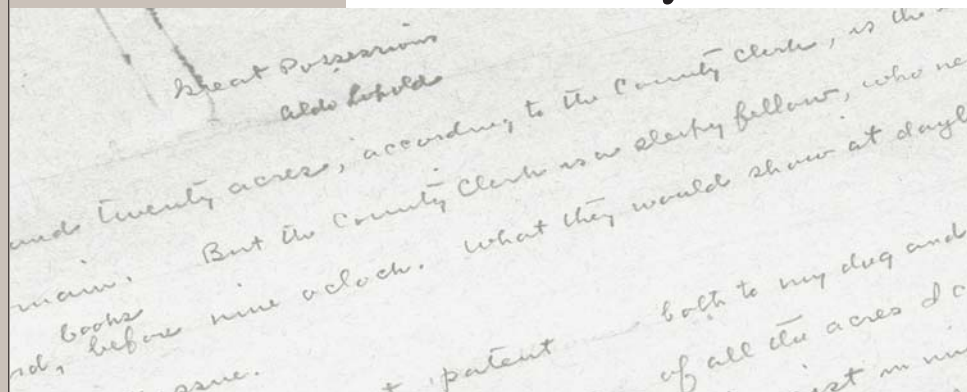 Great Possessions
Aldo Leopold
and twenty acres, according to the County Clerk, is the
main. But the County Clerk is a sleepy fellow, who
books
before nine oclock. What they would show at
patent both to my dog and
of all the acres I
in